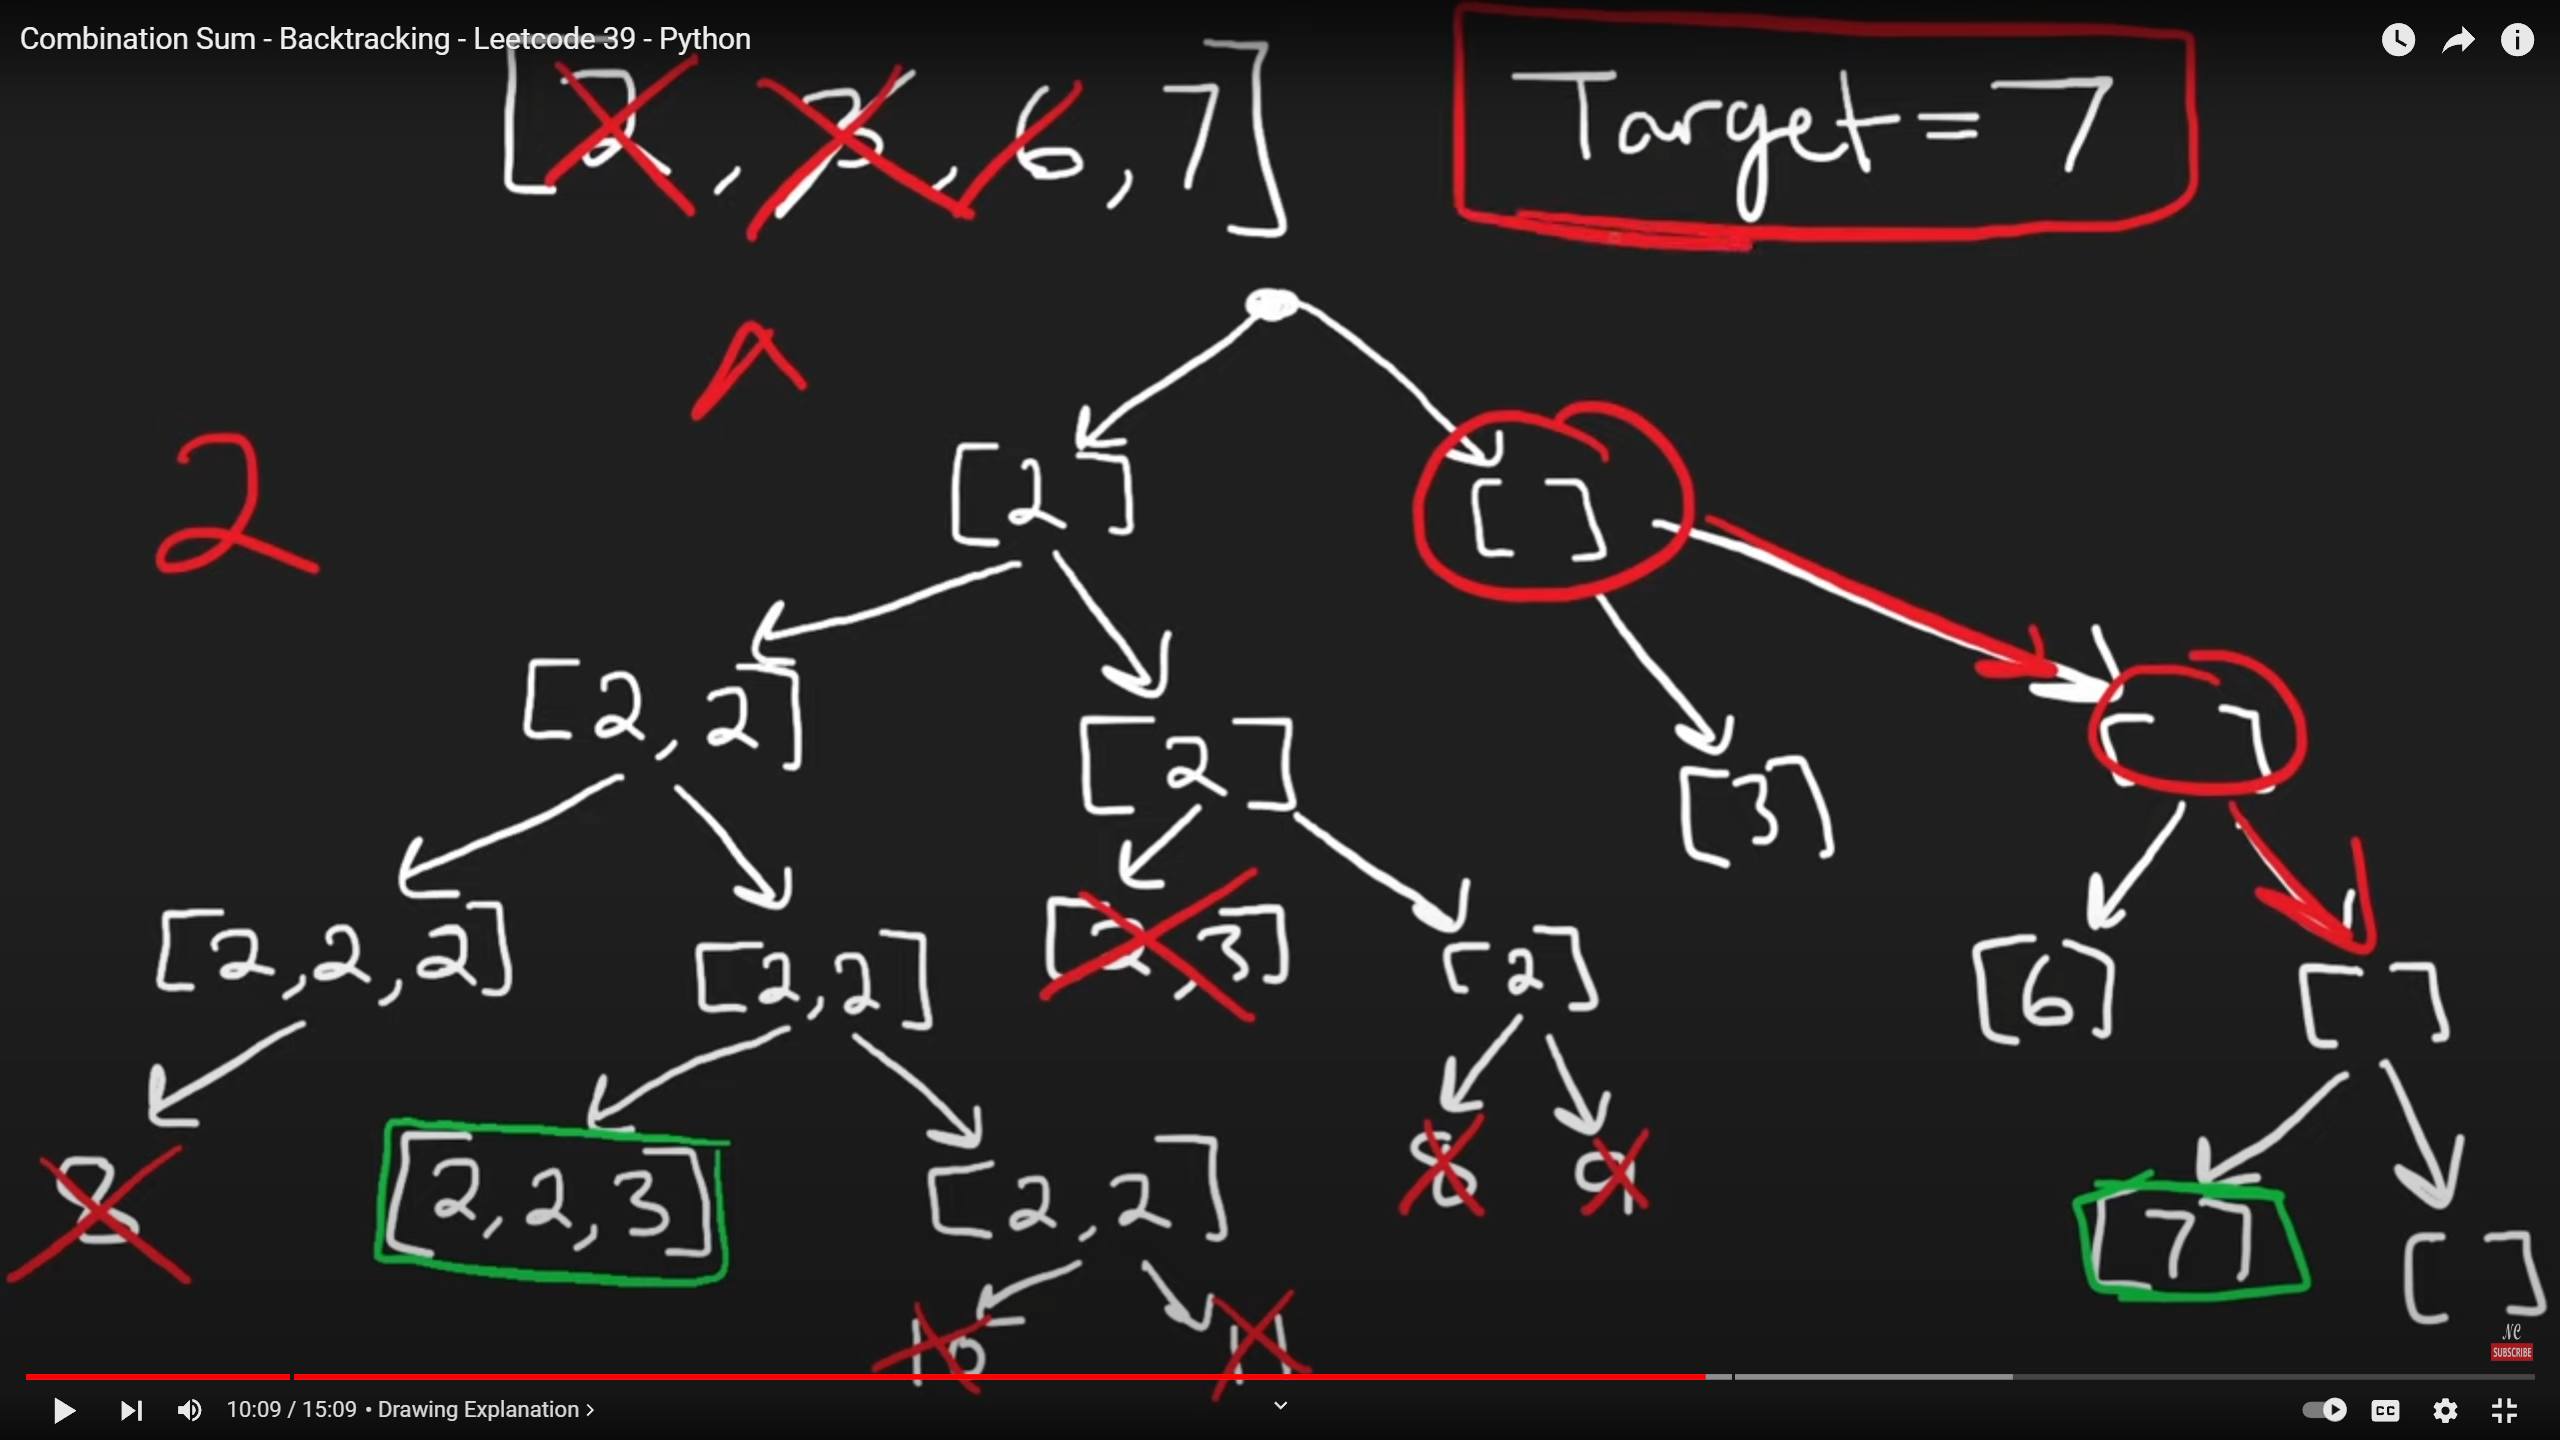 Combination Sum - Backtracking - Leetcode 39 - Python
[2, 3, 6, 7]
Target = 7
2
[2]
[ ]
[2, 2]
[2]
[3]
[ ]
[2,2,2]
[2,2]
[2,3]
[2]
[6]
[ ]
8
[2,2,3]
[2,2]
8
9
[7]
[ ]
10
11
NC
SUBSCRIBE
10:09 / 15:09 • Drawing Explanation >
CC